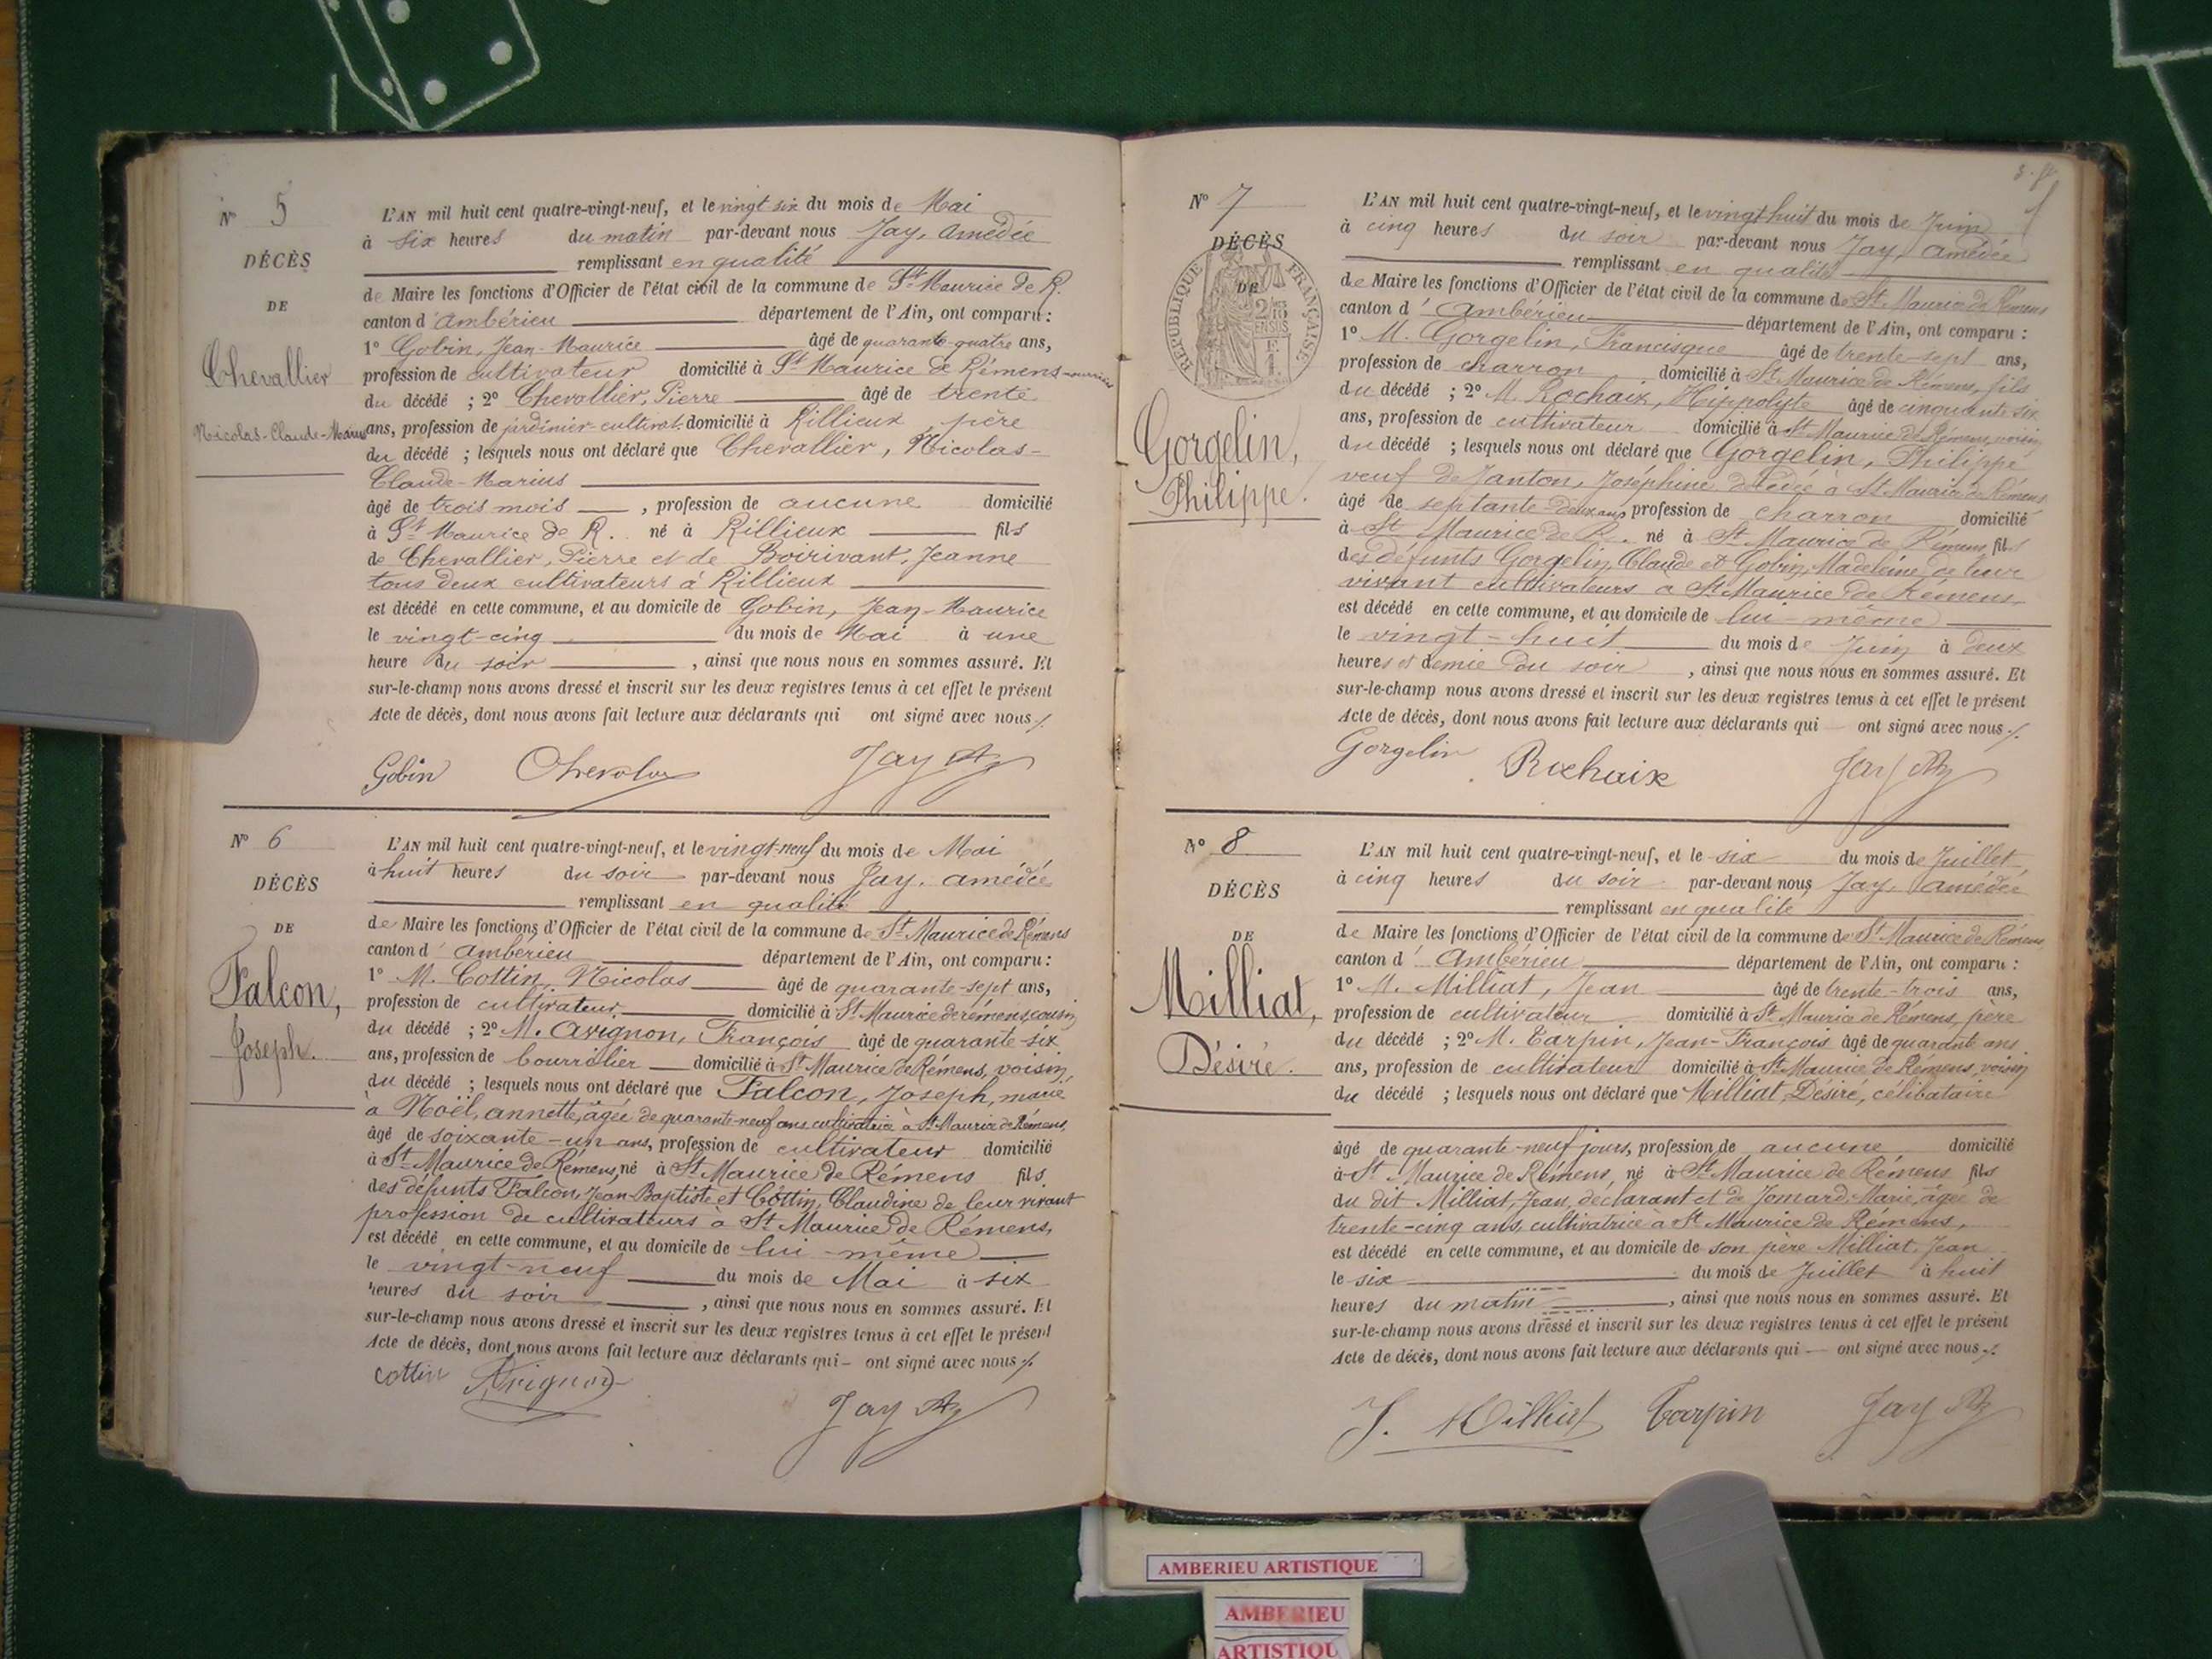 N° 5
DÉCÈS
DE
Chevallier
Nicolas-Claude-Marius
L'AN mil huit cent quatre-vingt-neuf, et le vingt six du mois de Mai
à six heures du matin par-devant nous Jay, Amédée
remplissant en qualité
de Maire les fonctions d'Officier de l'état civil de la commune de St Maurice de R.
canton d'Ambérieu département de l'Ain, ont comparu :
1° Gobin, Jean-Maurice âgé de quarante-quatre ans,
profession de cultivateur domicilié à St Maurice de Rémens nourricier
du décédé ; 2° Chevallier, Pierre âgé de trente
ans, profession de jardinier-cultivat. domicilié à Rillieux père
du décédé ; lesquels nous ont déclaré que Chevallier, Nicolas-
Claude-Marius
âgé de trois mois , profession de aucune domicilié
à St Maurice de R. né à Rillieux fils
de Chevallier, Pierre et de Boirivant, Jeanne
tous deux cultivateurs à Rillieux
est décédé en cette commune, et au domicile de Gobin, Jean-Maurice
le vingt-cinq du mois de Mai à une
heure du soir , ainsi que nous nous en sommes assuré. Et
sur-le-champ nous avons dressé et inscrit sur les deux registres tenus à cet effet le présent
Acte de décès, dont nous avons fait lecture aux déclarants qui ont signé avec nous ./.
Gobin Chevalier Jay Az
N° 6
DÉCÈS
DE
Falcon,
Joseph.
L'AN mil huit cent quatre-vingt-neuf, et le vingt-neuf du mois de Mai
à huit heures du soir par-devant nous Jay, Amédée
remplissant en qualité
de Maire les fonctions d'Officier de l'état civil de la commune de St Maurice de Rémens
canton d'Ambérieu département de l'Ain, ont comparu :
1° M. Cottin, Nicolas âgé de quarante-sept ans,
profession de cultivateur domicilié à St Maurice de rémens, cousin
du décédé ; 2° M. Avignon, François âgé de quarante-six
ans, profession de bourrelier domicilié à St Maurice de Rémens, voisin
du décédé ; lesquels nous ont déclaré que Falcon, Joseph, marié
à Noël, annette, âgée de quarante-neuf ans, cultivatrice à St Maurice de Rémens,
âgé de soixante-un ans, profession de cultivateur domicilié
à St Maurice de Rémens, né à St Maurice de Rémens fils
des défunts Falcon, Jean-Baptiste et Cottin, Claudine de leur vivant
profession de cultivateurs à St Maurice de Rémens,
est décédé en cette commune, et au domicile de lui-même
le vingt-neuf du mois de Mai à six
heures du soir , ainsi que nous nous en sommes assuré. Et
sur-le-champ nous avons dressé et inscrit sur les deux registres tenus à cet effet le présent
Acte de décès, dont nous avons fait lecture aux déclarants qui – ont signé avec nous ./.
Cottin Avignon
Jay Az
N° 7
DÉCÈS
DE
RÉPUBLIQUE FRANÇAISE
Gorgelin,
Philippe.
L'AN mil huit cent quatre-vingt-neuf, et le vingt huit du mois de Juin
à cinq heures du soir par-devant nous Jay, Amédée
remplissant en qualité
de Maire les fonctions d'Officier de l'état civil de la commune de St Maurice de Rémens
canton d'Ambérieu département de l'Ain, ont comparu :
1° M. Gorgelin, Francisque âgé de trente-sept ans,
profession de charron domicilié à St Maurice de Rémens, fils
du décédé ; 2° M. Rochaix, Hippolyte âgé de cinquante-six
ans, profession de cultivateur domicilié à St Maurice de Rémens, voisin
du décédé ; lesquels nous ont déclaré que Gorgelin, Philippe
veuf de Janton, Joséphine décédée à St Maurice de Rémens
âgé de septante-deux ans, profession de charron domicilié
à St Maurice de R. né à St Maurice de Rémens fils
des défunts Gorgelin, Claude et Gobin, Madeleine de leur
vivant cultivateurs à St Maurice de Rémens,
est décédé en cette commune, et au domicile de lui-même
le vingt-huit du mois de Juin à deux
heures et demie du soir , ainsi que nous nous en sommes assuré. Et
sur-le-champ nous avons dressé et inscrit sur les deux registres tenus à cet effet le présent
Acte de décès, dont nous avons fait lecture aux déclarants qui — ont signé avec nous ./.
Gorgelin Rochaix Jay Az
N° 8
DÉCÈS
DE
Milliat,
Désiré.
L'AN mil huit cent quatre-vingt-neuf, et le six du mois de Juillet
à cinq heures du soir par-devant nous Jay, Amédée
remplissant en qualité
de Maire les fonctions d'Officier de l'état civil de la commune de St Maurice de Rémens
canton d'Ambérieu département de l'Ain, ont comparu :
1° M. Milliat, Jean âgé de trente-trois ans,
profession de cultivateur domicilié à St Maurice de Rémens, père
du décédé ; 2° M. Carpin, Jean-François âgé de quarante ans
ans, profession de cultivateur domicilié à St Maurice de Rémens, voisin
du décédé ; lesquels nous ont déclaré que Milliat, Désiré, célibataire
âgé de quarante-neuf jours, profession de aucune domicilié
à St Maurice de Rémens, né à St Maurice de Rémens fils
du dit Milliat, Jean, déclarant et de Jomard Marie, âgée de
trente-cinq ans, cultivatrice à St Maurice de Rémens,
est décédé en cette commune, et au domicile de son père Milliat, Jean
le six du mois de Juillet à huit
heures du matin , ainsi que nous nous en sommes assuré. Et
sur-le-champ nous avons dressé et inscrit sur les deux registres tenus à cet effet le présent
Acte de décès, dont nous avons fait lecture aux déclarants qui — ont signé avec nous ./.
J. Milliat Carpin Jay Az
AMBERIEU ARTISTIQUE
AMBERIEU
ARTISTIQU